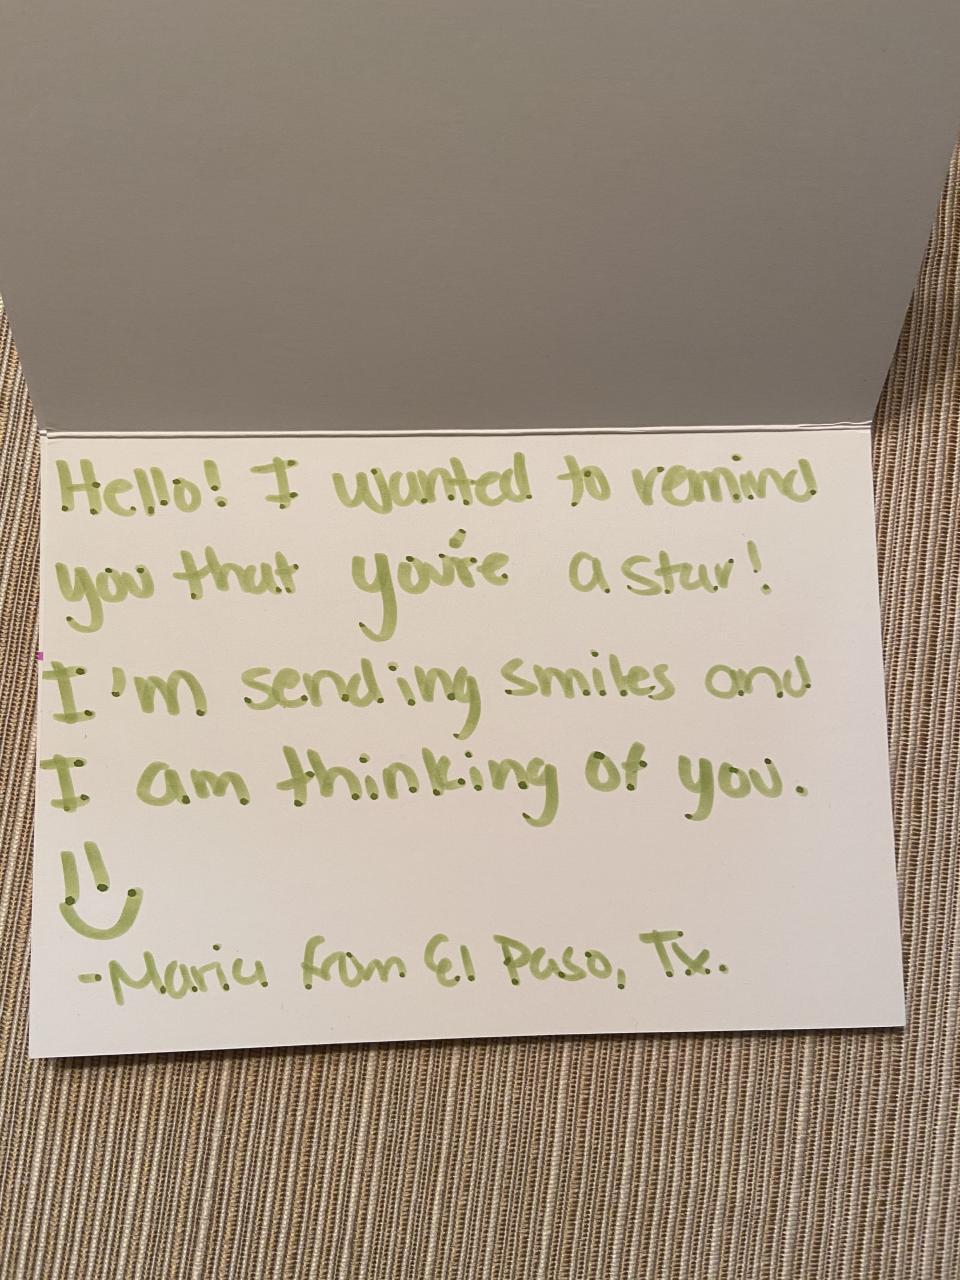 Hello! I wanted to remind
you that you're a star!
I'm sending smiles and
I am thinking of you.
-Maria from El Paso, Tx.